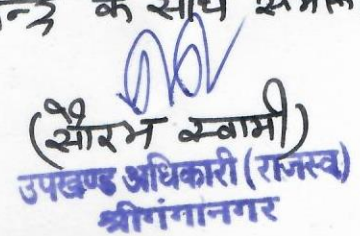 के साथ
(सौरभ स्वामी)
उपखण्ड अधिकारी (राजस्व)
श्रीगंगानगर